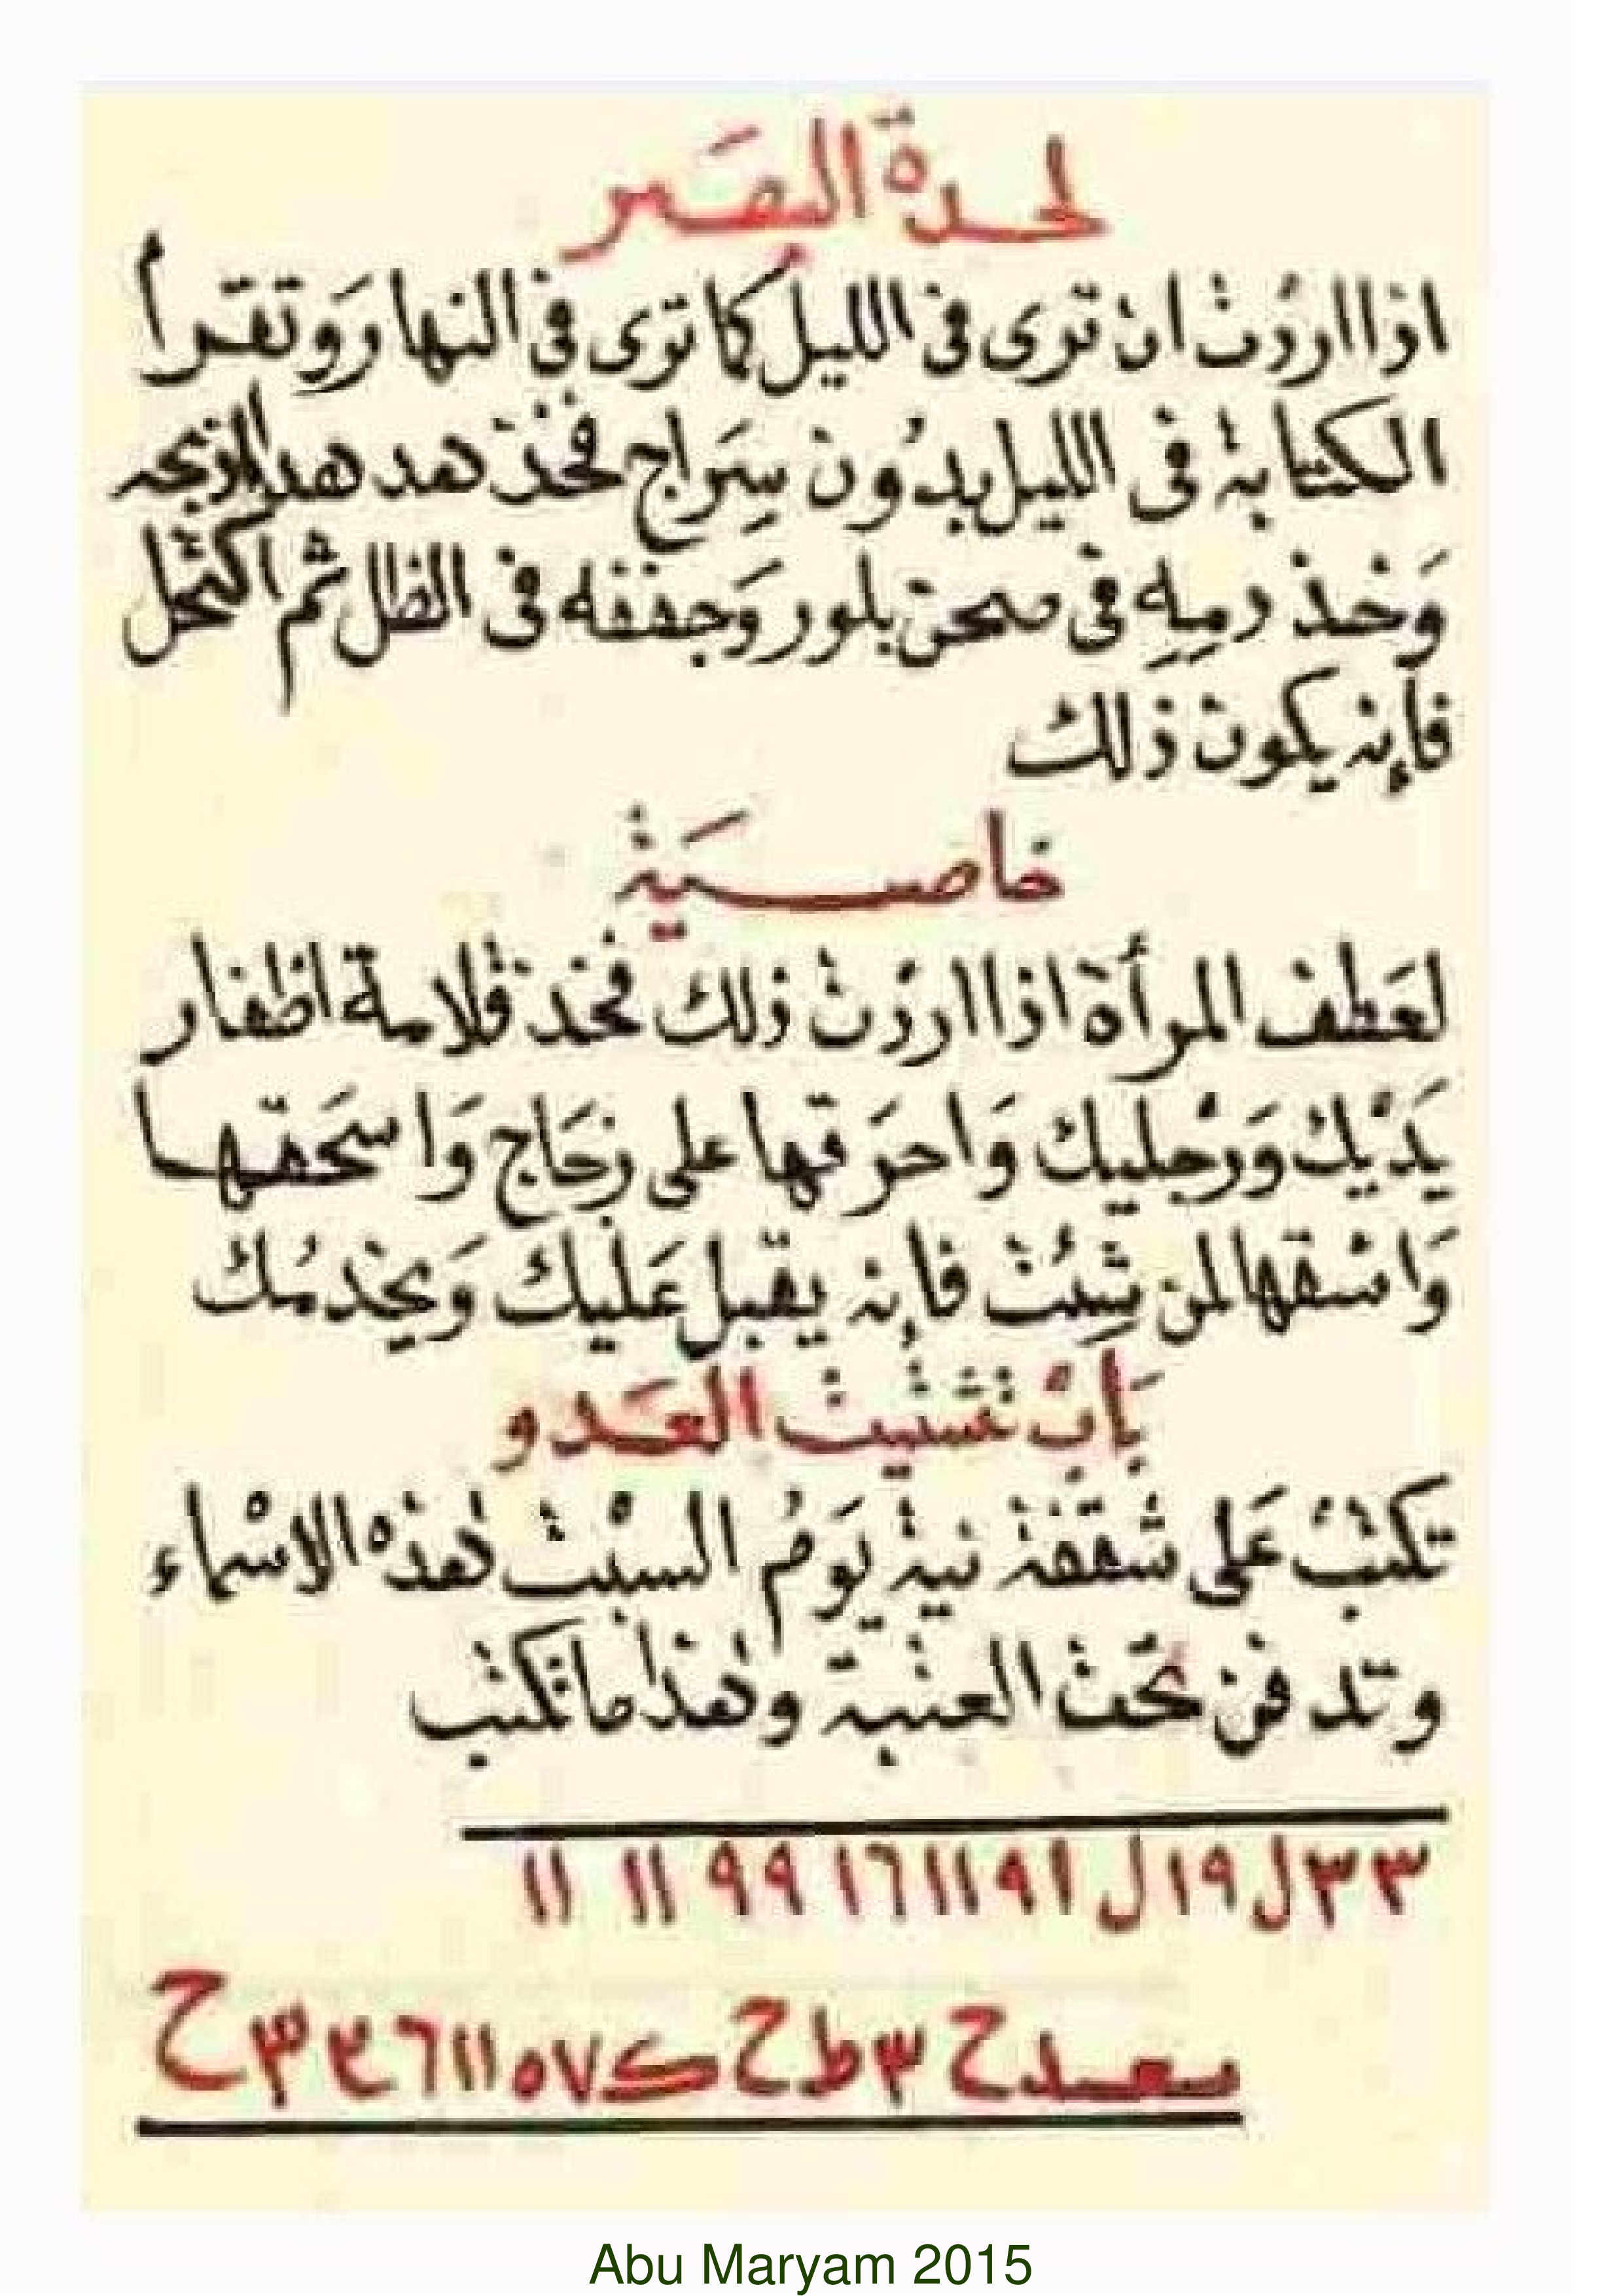 لحدة البصَر
اذا اردت ان ترى فى الليل كما ترى فى النهار وَتقرأ
الكتابة فى الليل بدُون سِرَاج فخذ هدهدا اذبحه
وَخذ دمِهِ فى صحن بلور وَجففه فى الظل ثم اكتحل
فإنه يكون ذلك
خاصــيَة
لعَطف المرأة اذا اردْت ذلك فخذ قلامة اظفار
يَدَيْك وَرجليك وَاحرَقها على زجَاج وَاسحَقهـا
وَاسْقها لمن شِئت فإنه يقبل عَليْك وَيخدمُك
بَابْ تشتيت العَدو
تكتبْ عَلى شقفة نية يَومْ السبْت هٰذه الاسْماء
وتدفن تحت العتبة وهٰذا ما تكتب
٣٣ل١٩ل١٩١١١٦٩٩ ١١ ١١
صعدح٣طح ك٧٥١١٦٤٣ح
Abu Maryam 2015